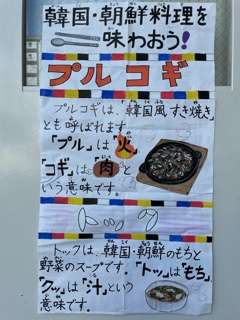 韓国・朝鮮料理を
味わおう!
プルコギ
プルコギは、韓国風すき焼き
とも呼ばれます。
「プル」は火、
「コギ」は肉と
いう意味です。
トックは、韓国・朝鮮のもちと
野菜のスープです。「トッ」は「もち」、
「クッ」は「汁」という
意味です。